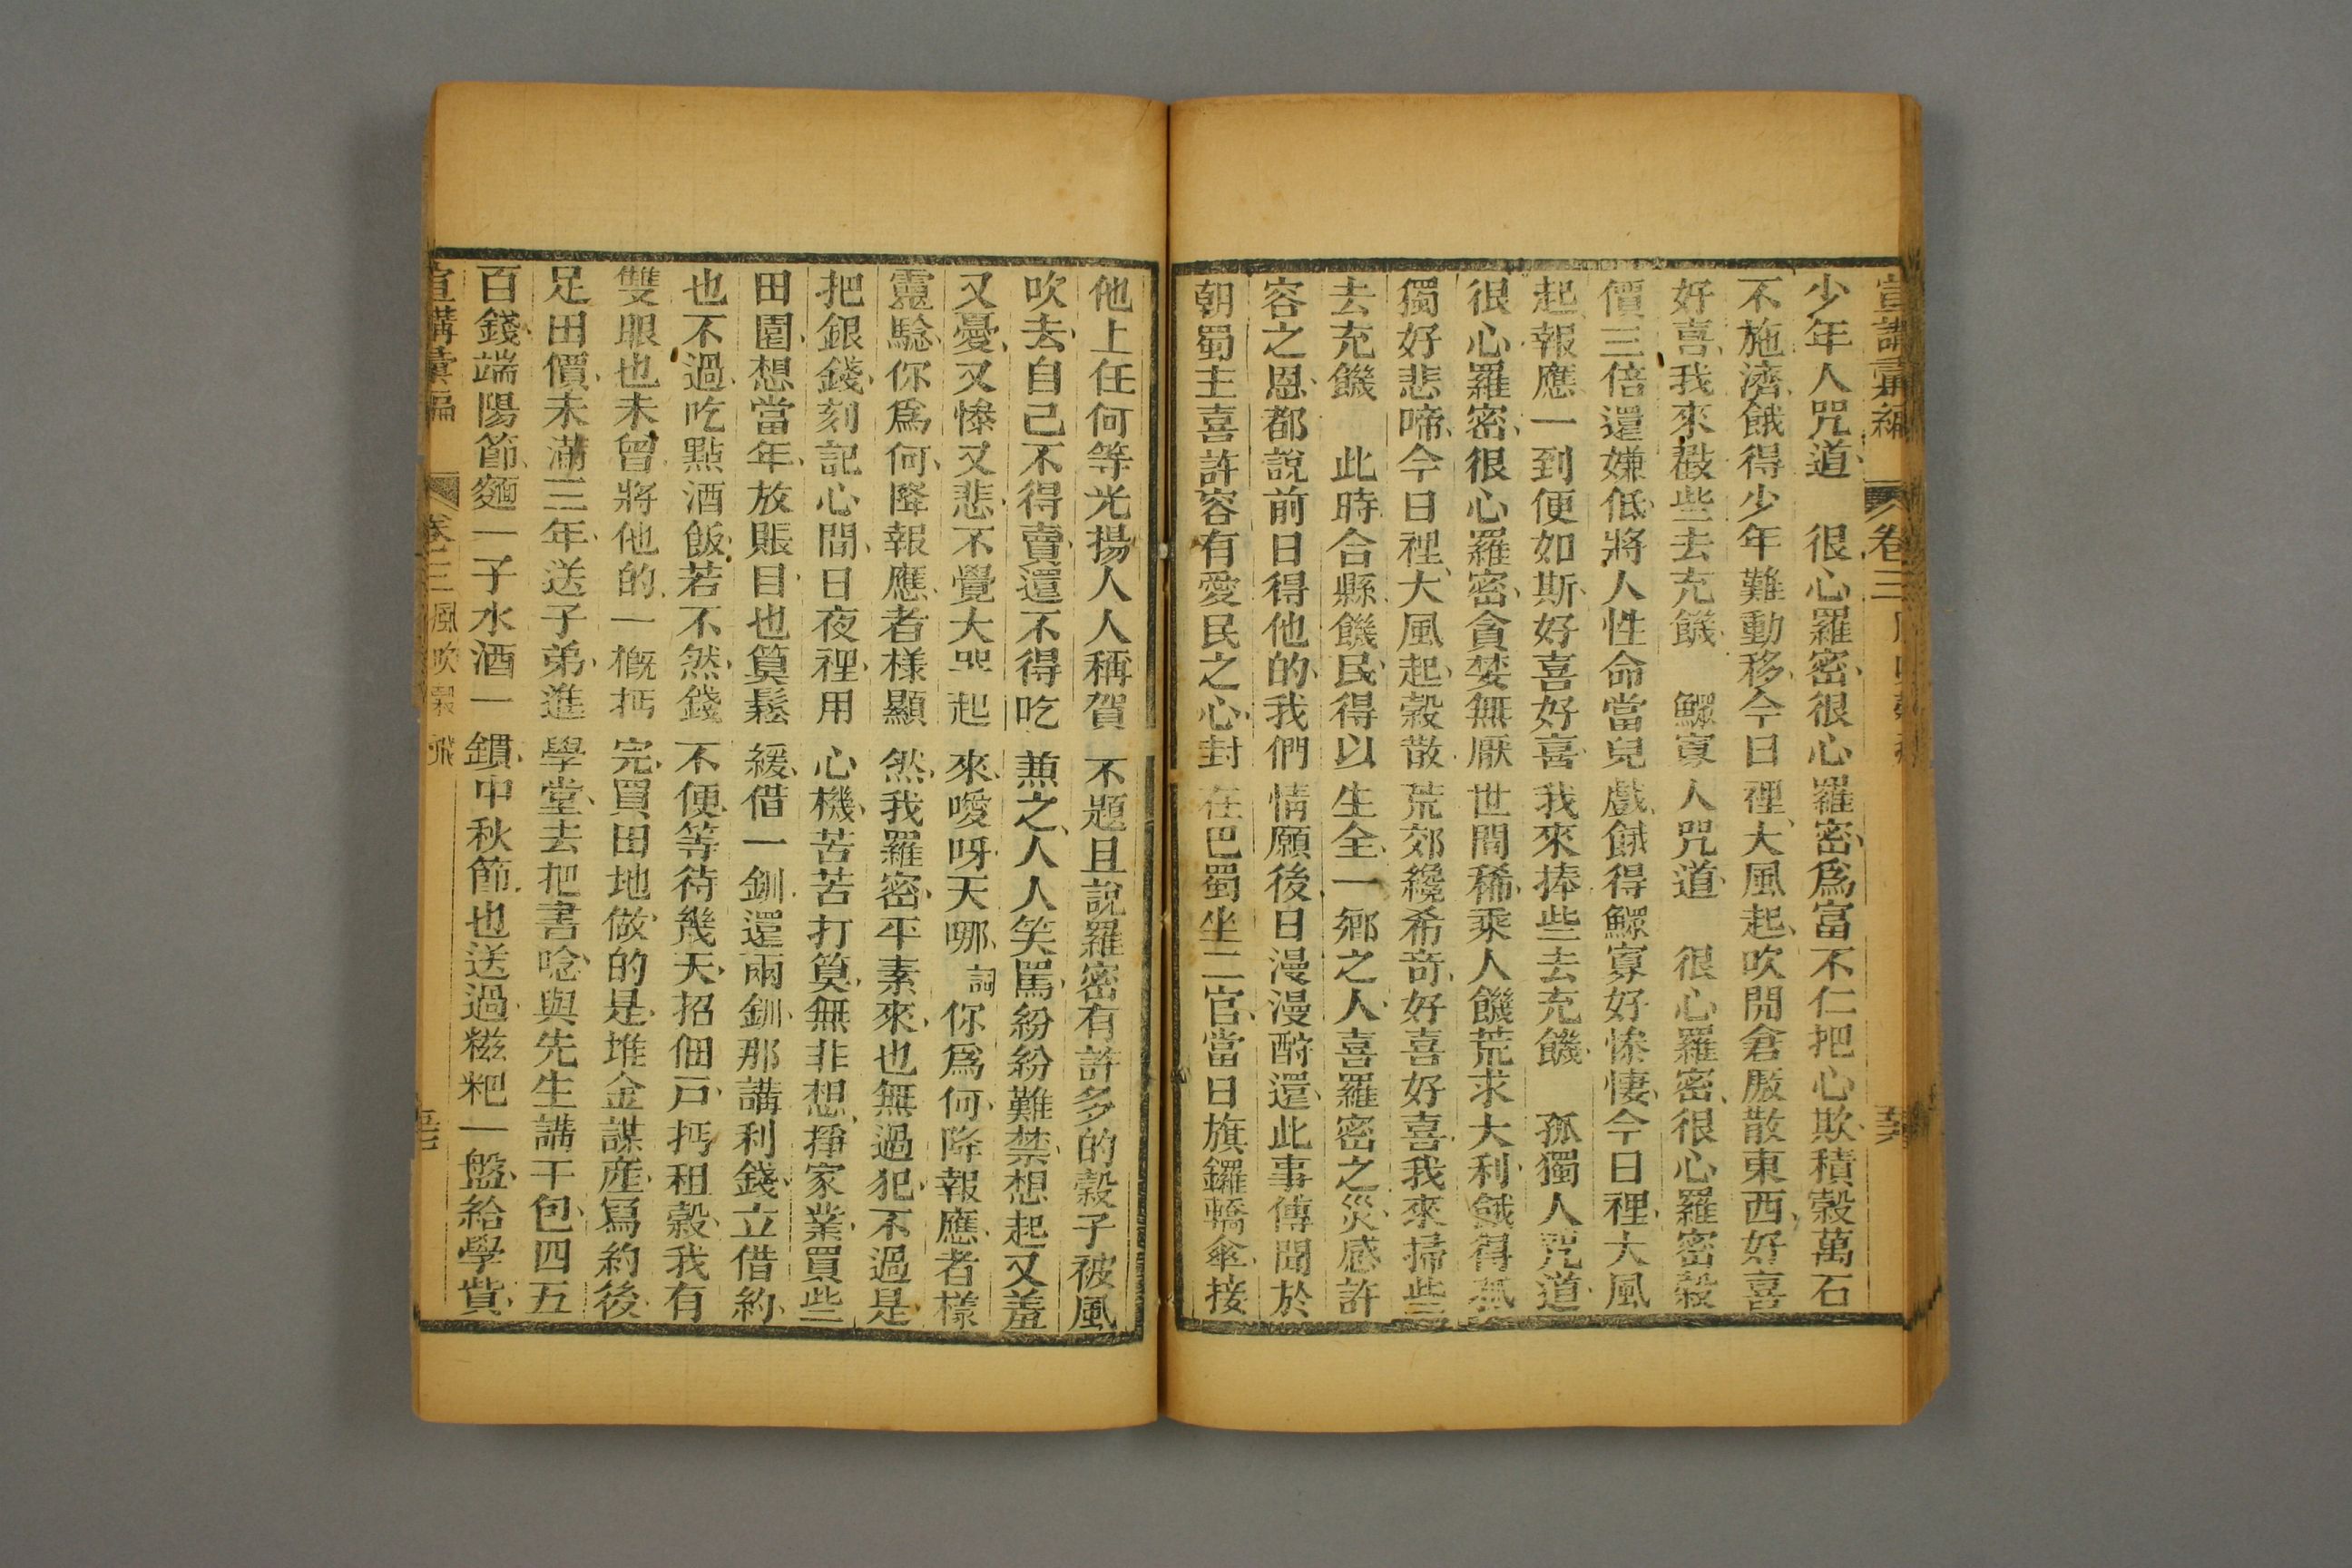 宣講彙編 卷三
少年人咒道 很心羅密很心羅密爲富不仁把心欺積穀萬石
不施濟餓得少年難動移今日裡大風起吹開倉厫散東西好喜
好喜我來㩇些去充饑 鰥寡人咒道 很心羅密很心羅密穀
價三倍還嫌低將人性命當兒戲餓得鰥寡好慘悽今日裡大風
起報應一到便如斯好喜好喜我來捧些去充饑 孤獨人咒道
很心羅密很心羅密貪婪無厭世間稀乘人饑荒求大利餓得孤
獨好悲啼今日裡大風起穀散荒郊纔希奇好喜好喜我來掃些
去充饑 此時合縣饑民得以生全一鄉之人喜羅密之災感許
容之恩都說前日得他的我們情願後日漫漫酧還此事傳聞於
朝蜀主喜許容有愛民之心封在巴蜀坐二官當日旗鑼轎傘接
他上任何等光揚人人稱賀不題且說羅密有許多的穀子被風
吹去自己不得賣還不得吃兼之人人笑罵紛紛難禁想起又羞
又憂又慘又悲不覺大哭起來噯呀天哪 詞 你爲何降報應者樣
靈騐你爲何降報應者樣顯然我羅密平素來也無過犯不過是
把銀錢刻記心間日夜裡用心機苦苦打算無非想掙家業買些
田園想當年放賬目也算鬆緩借一釧還兩釧那講利錢立借約
也不過吃點酒飯若不然錢不便等待幾天招佃戸抅租穀我有
雙眼也未曾將他的一概抅完買田地做的是堆金謀產寫約後
足田價未滿三年送子弟進學堂去把書唸與先生講干包四五
百錢端陽節麵一子水酒一鑽中秋節也送過糍粑一盤給學貲
宣講彙編 卷三 風吹穀飛